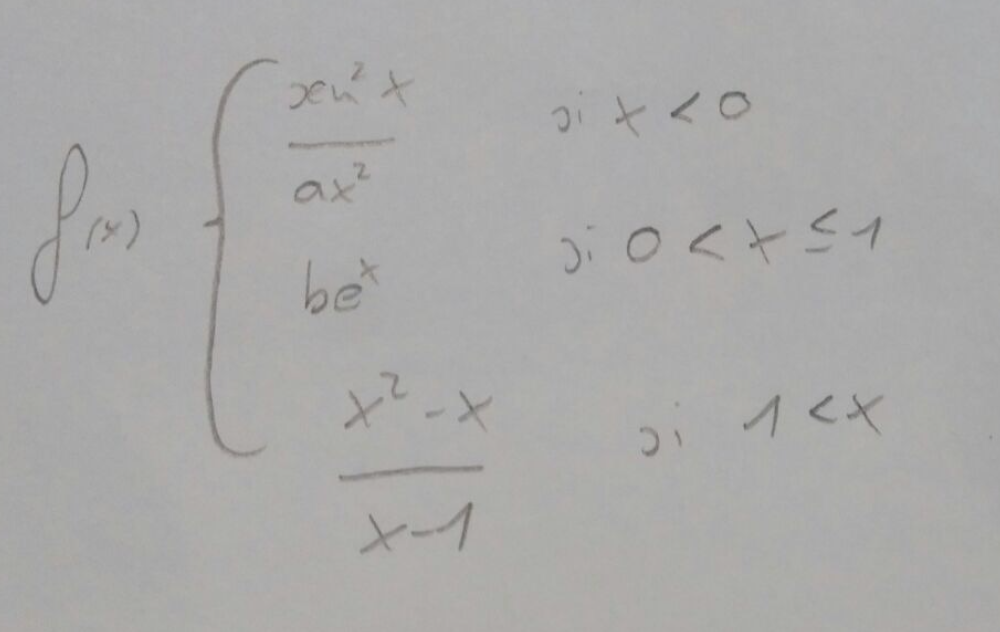 f(x) { sen²x / ax² si x < 0
be^x si 0 < x ≤ 1
x² - x / x - 1 si 1 < x